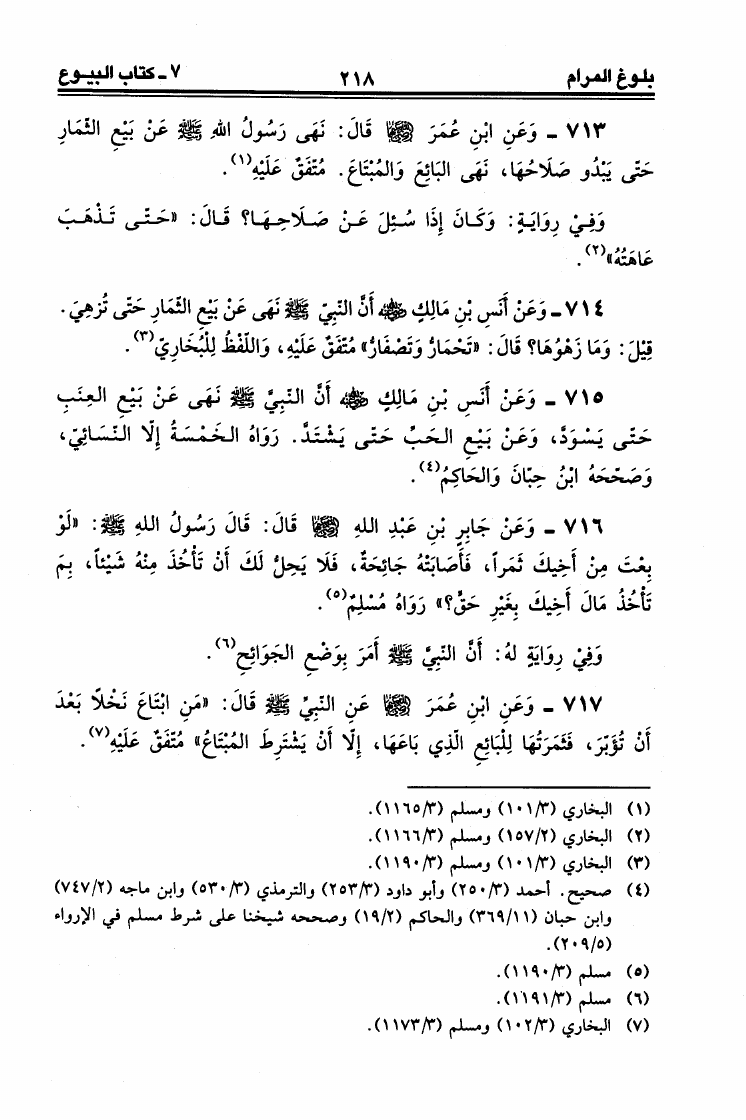 بلوغ المرام ٢١٨ ٧ ـ كتاب البيوع
٧١٣ ـ وَعَنِ ابْنِ عُمَرَ ﵄ قَالَ: نَهَى رَسُولُ اللهِ ﷺ عَنْ بَيْعِ الثِّمَارِ
حَتَّى يَبْدُو صَلَاحُهَا، نَهَى البَائِعَ وَالمُبْتَاعَ. مُتَّفَقٌ عَلَيْهِ(١).
وَفِيْ رِوَايَةٍ: وَكَانَ إِذَا سُئِلَ عَنْ صَلَاحِهَا؟ قَالَ: «حَتَّى تَذْهَبَ
عَاهَتُهُ»(٢).
٧١٤ـ وَعَنْ أَنَسِ بْنِ مَالِكٍ ﵁ أَنَّ النَّبِيَّ ﷺ نَهَى عَنْ بَيْعِ الثِّمَارِ حَتَّى تُزْهِيَ.
قِيْلَ: وَمَا زَهْوُهَا؟ قَالَ: «تَحْمَارُّ وَتَصْفَارُّ» مُتَّفَقٌ عَلَيْهِ، وَاللَّفْظُ لِلْبُخَارِيِّ(٣).
٧١٥ ـ وَعَنْ أَنَسِ بْنِ مَالِكٍ ﵁ أَنَّ النَّبِيَّ ﷺ نَهَى عَنْ بَيْعِ العِنَبِ
حَتَّى يَسْوَدَّ، وَعَنْ بَيْعِ الحَبِّ حَتَّى يَشْتَدَّ. رَوَاهُ الخَمْسَةُ إِلَّا النَّسَائِيَّ،
وَصَحَّحَهُ ابْنُ حِبَّانَ وَالحَاكِمُ(٤).
٧١٦ ـ وَعَنْ جَابِرِ بْنِ عَبْدِ اللهِ ﵄ قَالَ: قَالَ رَسُولُ اللهِ ﷺ: «لَوْ
بِعْتَ مِنْ أَخِيكَ ثَمَراً، فَأَصَابَتْهُ جَائِحَةٌ، فَلَا يَحِلُّ لَكَ أَنْ تَأْخُذَ مِنْهُ شَيْئاً، بِمَ
تَأْخُذُ مَالَ أَخِيكَ بِغَيْرِ حَقٍّ؟» رَوَاهُ مُسْلِمٌ(٥).
وَفِيْ رِوَايَةٍ لَهُ: أَنَّ النَّبِيَّ ﷺ أَمَرَ بِوَضْعِ الجَوَائِحِ(٦).
٧١٧ ـ وَعَنِ ابْنِ عُمَرَ ﵄ عَنِ النَّبِيِّ ﷺ قَالَ: «مَنِ ابْتَاعَ نَخْلاً بَعْدَ
أَنْ تُؤَبَّرَ، فَثَمَرَتُهَا لِلْبَائِعِ الَّذِي بَاعَهَا، إِلَّا أَنْ يَشْتَرِطَ المُبْتَاعُ» مُتَّفَقٌ عَلَيْهِ(٧).
(١) البخاري (١٠١/٣) ومسلم (١١٦٥/٣).
(٢) البخاري (١٥٧/٢) ومسلم (١١٦٦/٣).
(٣) البخاري (١٠١/٣) ومسلم (١١٩٠/٣).
(٤) صحيح. أحمد (٢٥٠/٣) وأبو داود (٢٥٣/٣) والترمذي (٥٣٠/٣) وابن ماجه (٧٤٧/٢)
وابن حبان (٣٦٩/١١) والحاكم (١٩/٢) وصححه شيخنا على شرط مسلم في الإرواء
(٢٠٩/٥).
(٥) مسلم (١١٩٠/٣).
(٦) مسلم (١١٩١/٣).
(٧) البخاري (١٠٢/٣) ومسلم (١١٧٣/٣).